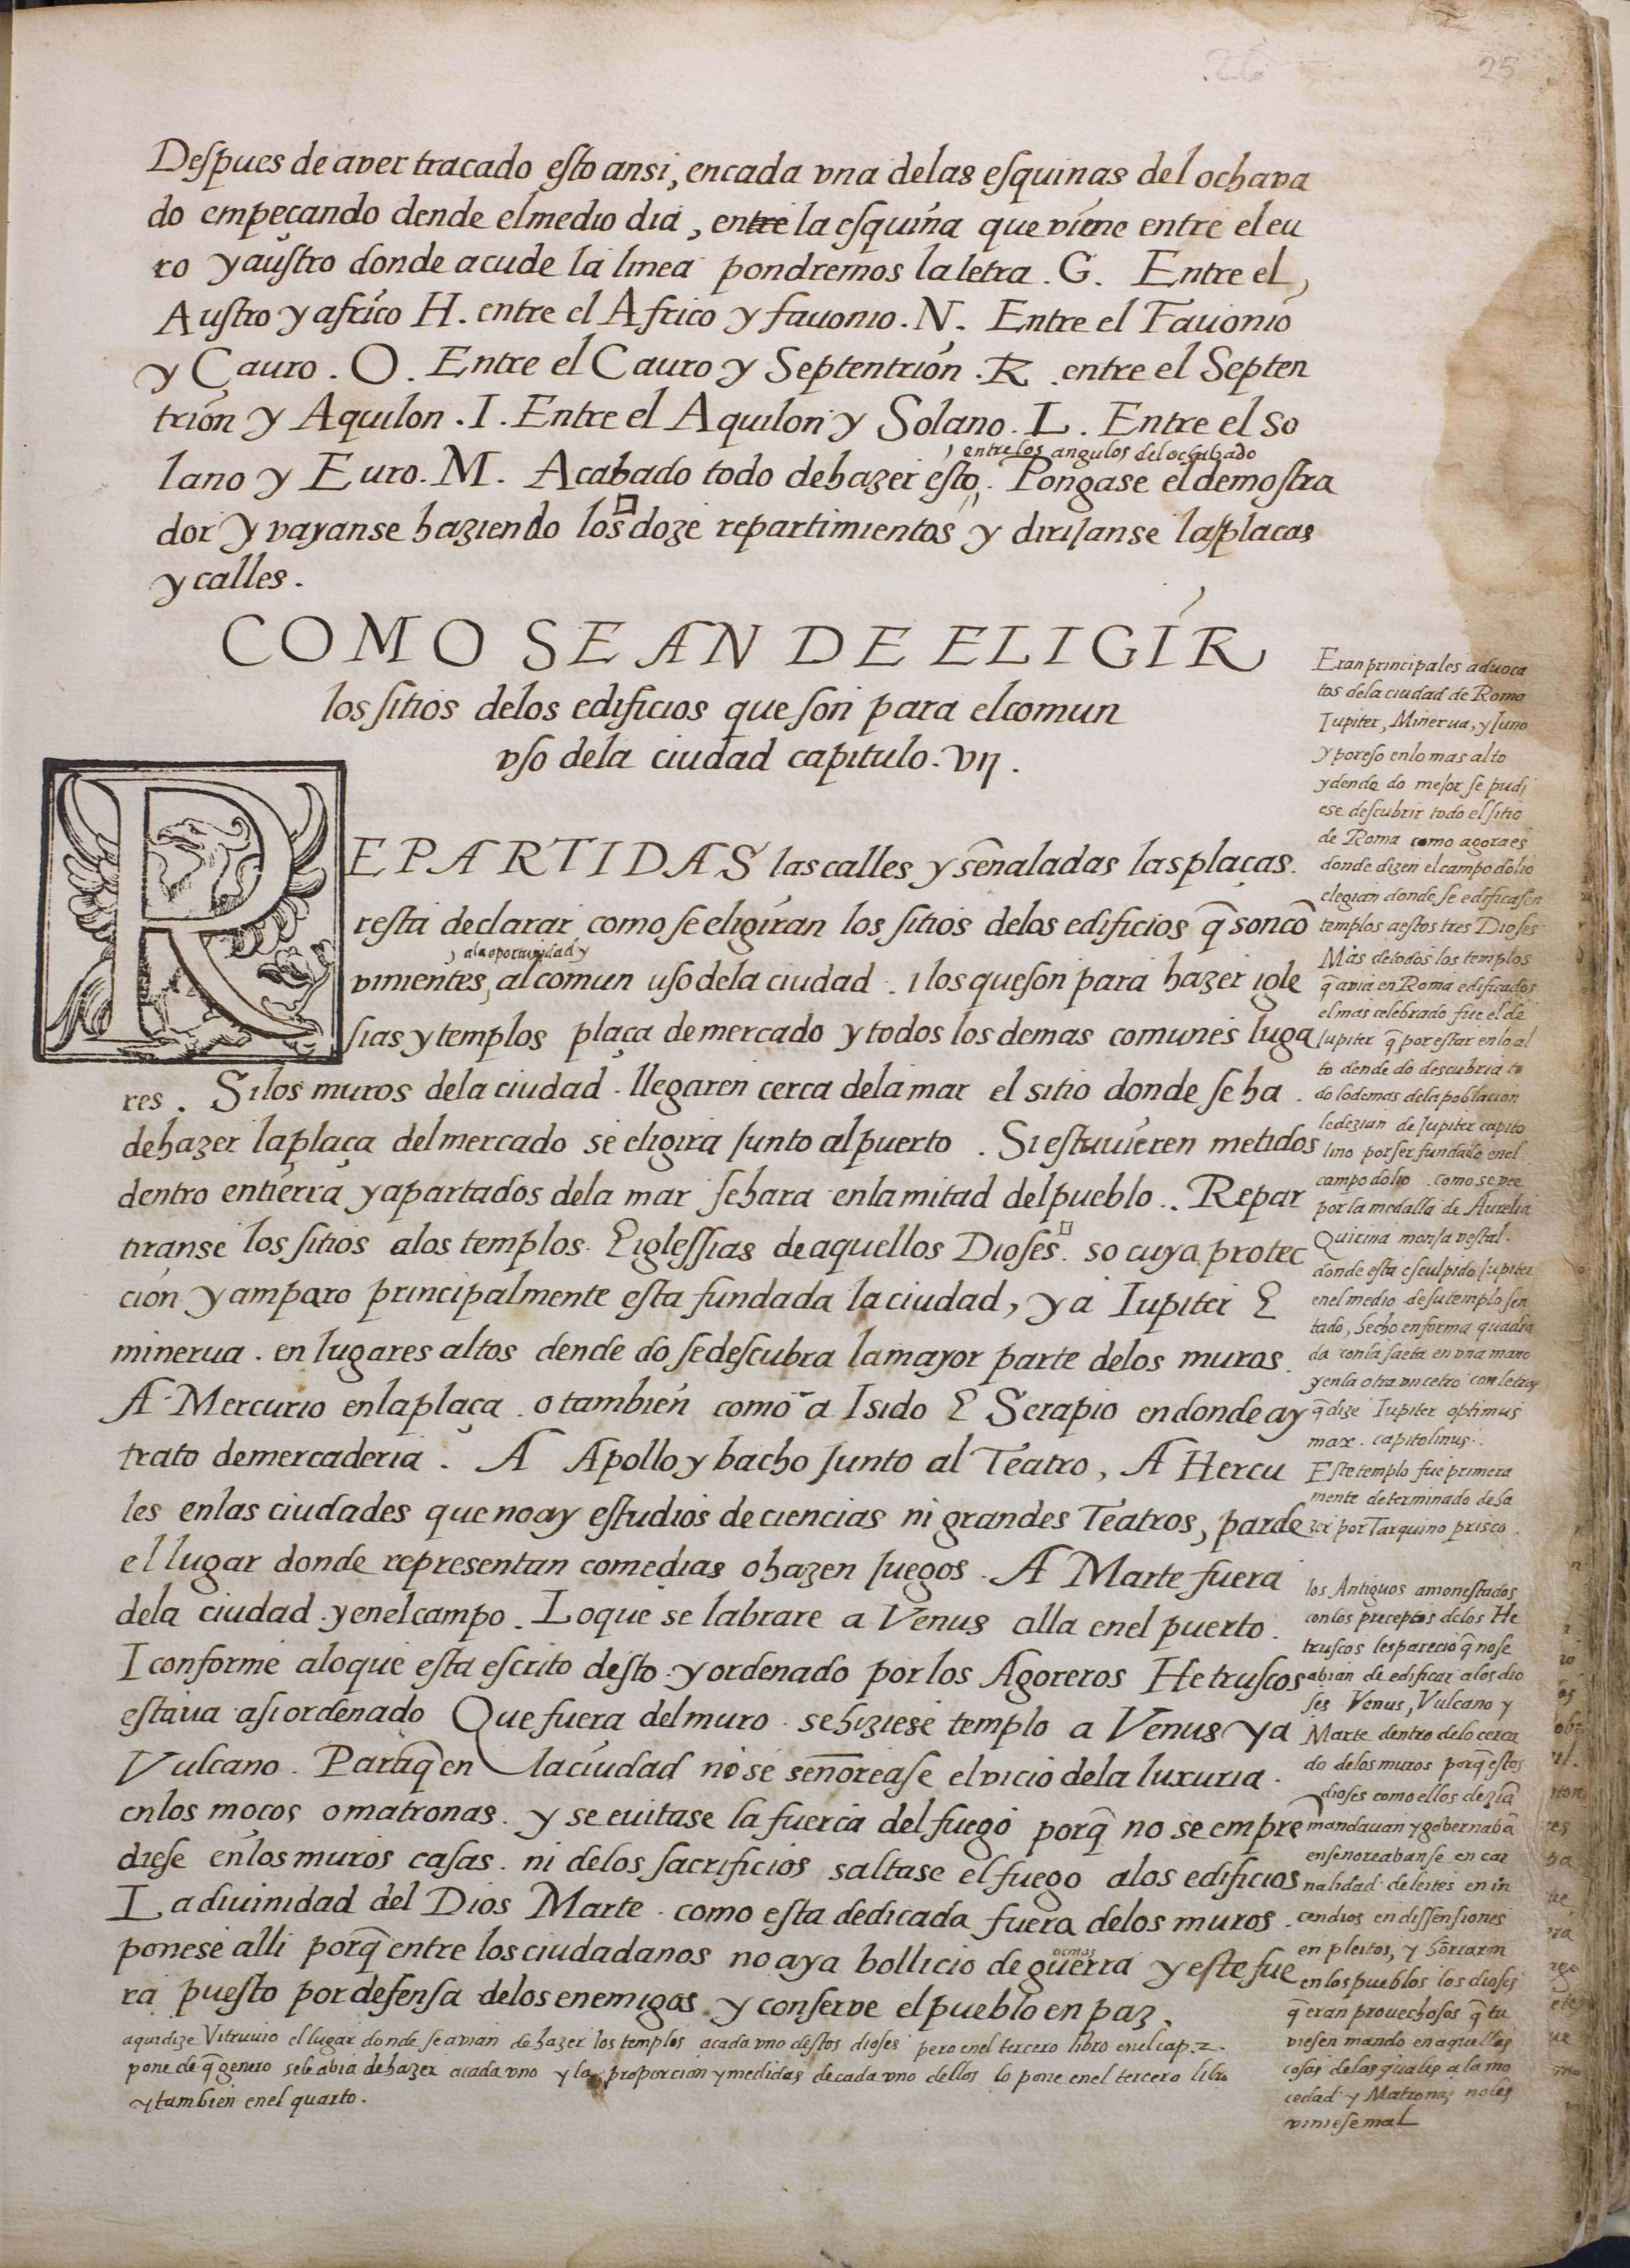 26
25
Despues de aver tracado esto ansi, encada vna delas esquinas del ochava
do empeçando dende elmedio dia, entre la esquina que viene entre el eu
ro y austro donde acude la linea pondremos la letra . G. Entre el
Austro y africo H. entre el Africo y fauonio . N. Entre el Fauonio
y Cauro . O . Entre el Cauro y Septentrion . K . entre el Septen
trion y Aquilon . I . Entre el Aquilon y Solano . L . Entre el So
, entre los angulos del ochabado
lano y Euro. M. Acabado todo dehazer esto,. Pongase el demostra
dor y vayanse haziendo los doze repartimientos y dirijanse las placas
y calles .
COMO SE AN DE ELIGIR
los sitios delos edificios que son para el comun
vso dela ciudad capitulo . VII .
REPARTIDAS las calles y señaladas las plaças .
resta declarar como se eligiran los sitios delos edificios q̃ son cõ
, ala oportunidad y
vinientes, al comun uso dela ciudad . i los que son para hazer igle
sias y templos plaça de mercado y todos los demas comunes luga
res . Si los muros dela ciudad . llegaren cerca dela mar el sitio donde se ha .
de hazer la plaça del mercado se eligira junto al puerto . Si estuuieren metidos
dentro en tierra y apartados dela mar se hara en la mitad del pueblo .. Repar
tiranse los sitios alos templos . E iglessias de aquellos Dioses . so cuya protec
cion y amparo principalmente esta fundada la ciudad, y a Iupiter E
minerua . en lugares altos dende do se descubra la mayor parte delos muros .
A Mercurio en la plaça . o tambien como a Isido E Serapio en donde ay
trato de mercaderia . A Apollo y bacho junto al Teatro, A Hercu
les en las ciudades que no ay estudios de ciencias ni grandes Teatros, par de
el lugar donde representan comedias o hazen juegos . A Marte fuera
dela ciudad . y en el campo . Lo que se labrare a Venus alla en el puerto .
I conforme alo que esta escrito desto y ordenado por los Agoreros Hetruscos
estaua asi ordenado Que fuera del muro . se hiziese templo a Venus y a
Vulcano . Paraq̃ en la ciudad no se señorease el vicio dela luxuria .
en los mocos o matronas . y se euitase la fuerca del fuego porq̃ no se emprẽ
diese en los muros casas . ni delos sacrificios saltase el fuego alos edificios
La diuinidad del Dios Marte . como esta dedicada fuera delos muros .
armas
ponese alli porq̃ entre los ciudadanos no aya bollicio de guerra y este fue
ra puesto por defensa delos enemigos . y conserve el pueblo en paz .
aqui dize Vitruvio el lugar donde se avian de hazer los templos acada vno destos dioses pero enel tercero libro enel cap . 2 .
pone de q̃ genero se le abia de hazer acada vno y la proporcion y medidas de cada vno dellos lo pone enel tercero libro
y tambien enel quarto .
Eran principales aduoca
tos dela ciudad de Roma
Iupiter, Minerua, y Iuno
y por eso en lo mas alto
y dende do mejor se pudi
ese descubrir todo el sitio
de Roma como agora es
donde dizen el campo dolio
elegian donde se edificasen
templos a estos tres Dioses
Mas de todos los templos
q̃ avia en Roma edificados
el mas celebrado fue el de
Iupiter q̃ por estar en lo al
to dende do descubria to
do lo demas dela poblacion
le dezian de Iupiter capito
lino por ser fundado enel
campo dolio . como se vee
por la medalla de Aurelia
Quirina monja vestal .
donde esta esculpido Iupiter
enel medio de su templo sen
tado, hecho en forma quadra
da con la saeta en vna mano
y en la otra vn cetro con letras
q̃ dize Iupiter optimus
max . capitolinus .
Este templo fue primera
mente determinado de ha
zer por Tarquino prisco .
los Antiguos amonestados
con los preceptos delos He
truscos les parecio q̃ no se
abian de edificar alos dio
ses Venus, Vulcano y
Marte dentro delo cerca
do delos muros porq̃ estos
dioses como ellos dezia
mandauan y gobernabã
enseñoreabanse en car
nalidad deleites en in
cendios en dissensiones
en pleitos, y
en los pueblos los dioses
q̃ eran prouechosos q̃ tu
viesen mando en aquellas
cosas delas quales a la mo
cedad y Matronas no les
viniese mal